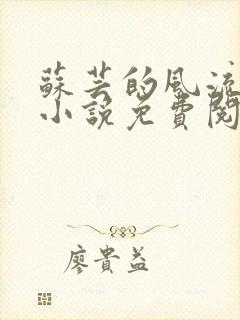 蘇芸的風流
小說免費閱
廖貴益